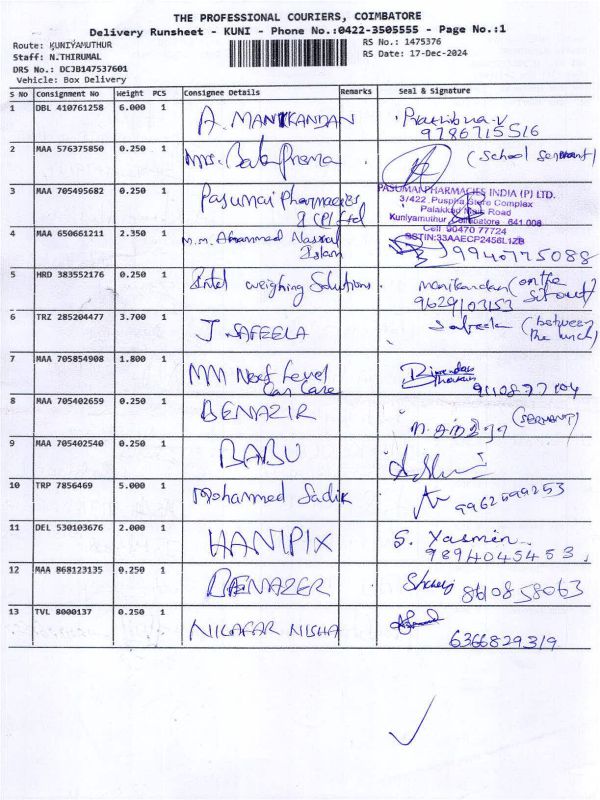 THE PROFESSIONAL COURIERS, COIMBATORE
Delivery Runsheet - KUNI - Phone No.:0422-3505555 - Page No.:1
Route: KUNIYAMUTHUR
RS No.: 1475376
Staff: N.THIRUMAL
RS Date: 17-Dec-2024
DRS No.: DCJB147537601
Vehicle: Box Delivery
S No Consignment No Weight PCS Consignee Details Remarks Seal & Signature
1 DBL 410761258 6.000 1 A. MANIKANDAN Prathibha.V
9786715516
2 MAA 576375850 0.250 1 Mrs. (School Servant)
3 MAA 705495682 0.250 1 Pasumai Pharmacies
I (P) Ltd
PASUMAI PHARMACIES INDIA (P) LTD.
3/422, Puspha Store Complex
Palakkad Main Road
Kuniyamuthur, Coimbatore - 641 008
Cell: 90470 77724
GSTIN:33AAECP2456L1ZB
4 MAA 650661211 2.350 1 M.M. Ahammed
Islam
9940775088
5 HRD 383552176 0.250 1 Intel weighing Solutions manikandan (on the
9629103153
6 TRZ 285204477 3.700 1 J. SAFEELA Safeela (between
the lunch)
7 MAA 705854908 1.800 1 MM Next Level
Car Care
8 MAA 705402659 0.250 1 BENAZIR (SERVANT)
9 MAA 705402540 0.250 1 BABU
10 TRP 7856469 5.000 1 Mohammed Sadik
11 DEL 530103676 2.000 1 HANIPIX S. Yasmin
9894045453
12 MAA 868123135 0.250 1 BENAZER 8610858063
13 TVL 8000137 0.250 1 NILAFAR NISHA
6366829319